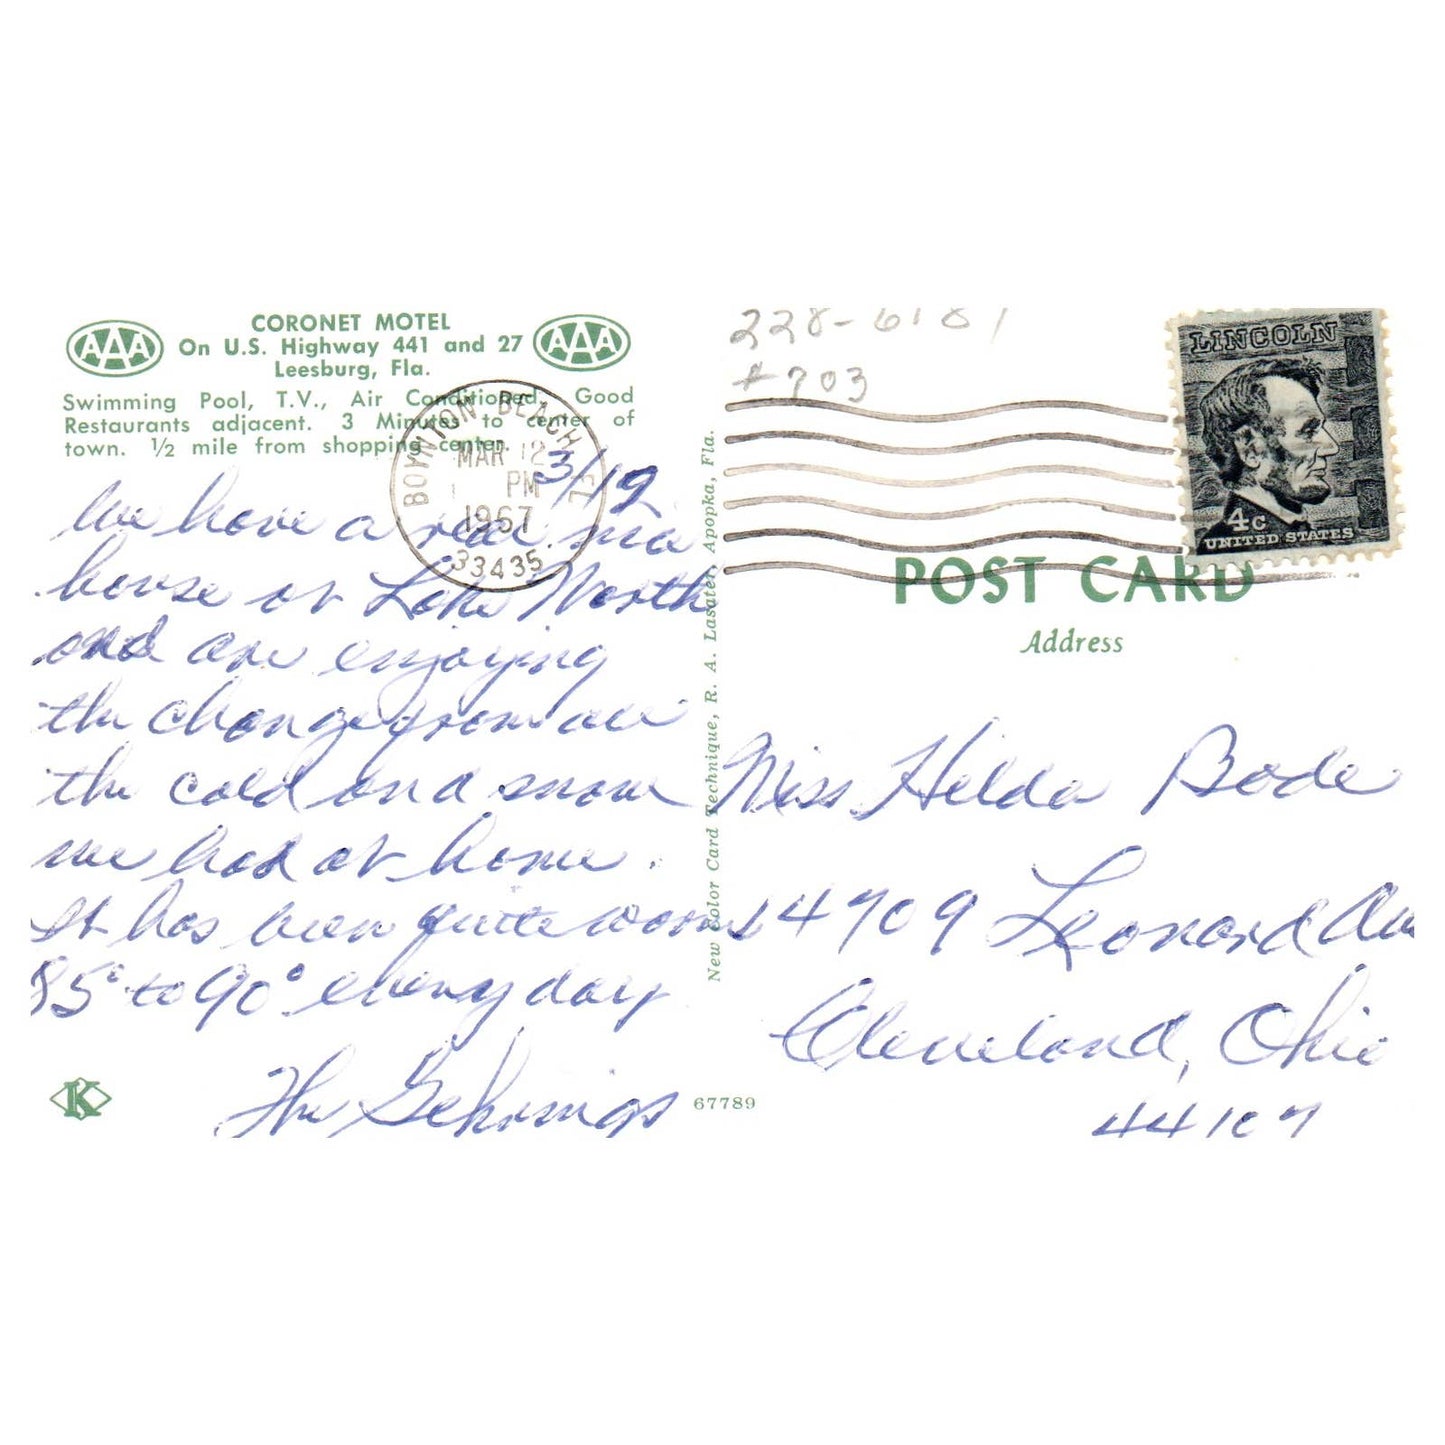 AAA
CORONET MOTEL
On U.S. Highway 441 and 27
Leesburg, Fla.
AAA
Swimming Pool, T.V., Air Conditioned, Good
Restaurants adjacent. 3 Minutes to center of
town. ½ mile from shopping center.
BOYNTON BEACH, FL
MAR 12
PM
1967
33435
3/12
We have a real nice
house at Lake Worth
and are enjoying
the change from all
the cold and snow
we had at home.
It has been quite warm
85° to 90° every day
The Gehrings
K
67789
New Color Card Technique, R. A. Lasater, Apopka, Fla.
228-6181
#703
LINCOLN
4c
UNITED STATES
POST CARD
Address
Miss Hilda Bode
14709 Leonard Av
Cleveland, Ohio
44107